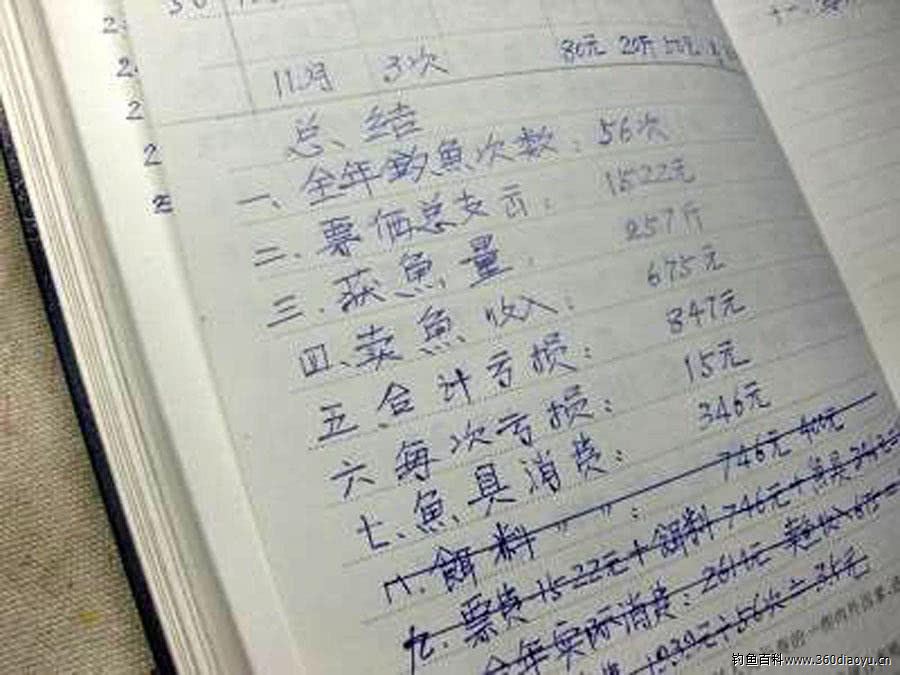 11月 3次 80元 20斤
总结
一、全年钓魚次数：56次
二、票価总支出：1522元
三、获魚量：257斤
四、卖魚收入：675元
五合计亏损：847元
六每次亏损：15元
七、魚具消费：346元
八、餌料 〃 〃：746元 400元
九、票费1522元+餌料746元+魚具346元
全年实际消费：2614元
1939元÷56次=35元
钓鱼百科www.360diaoyu.cn